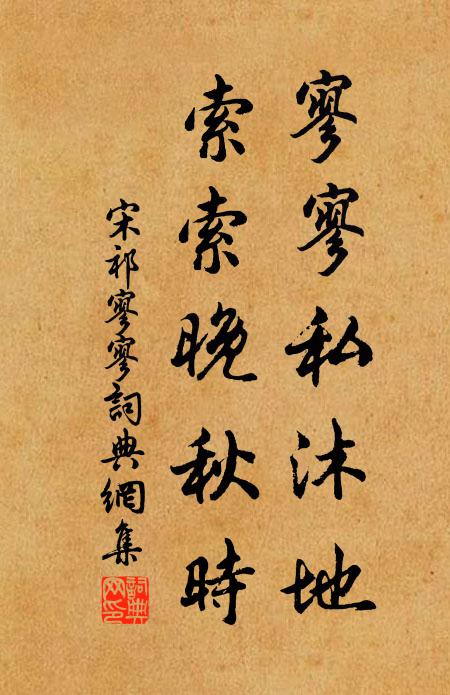 寥寥私沐地
索索晚秋時
宋祁寥寥詞典網集
詞典網印